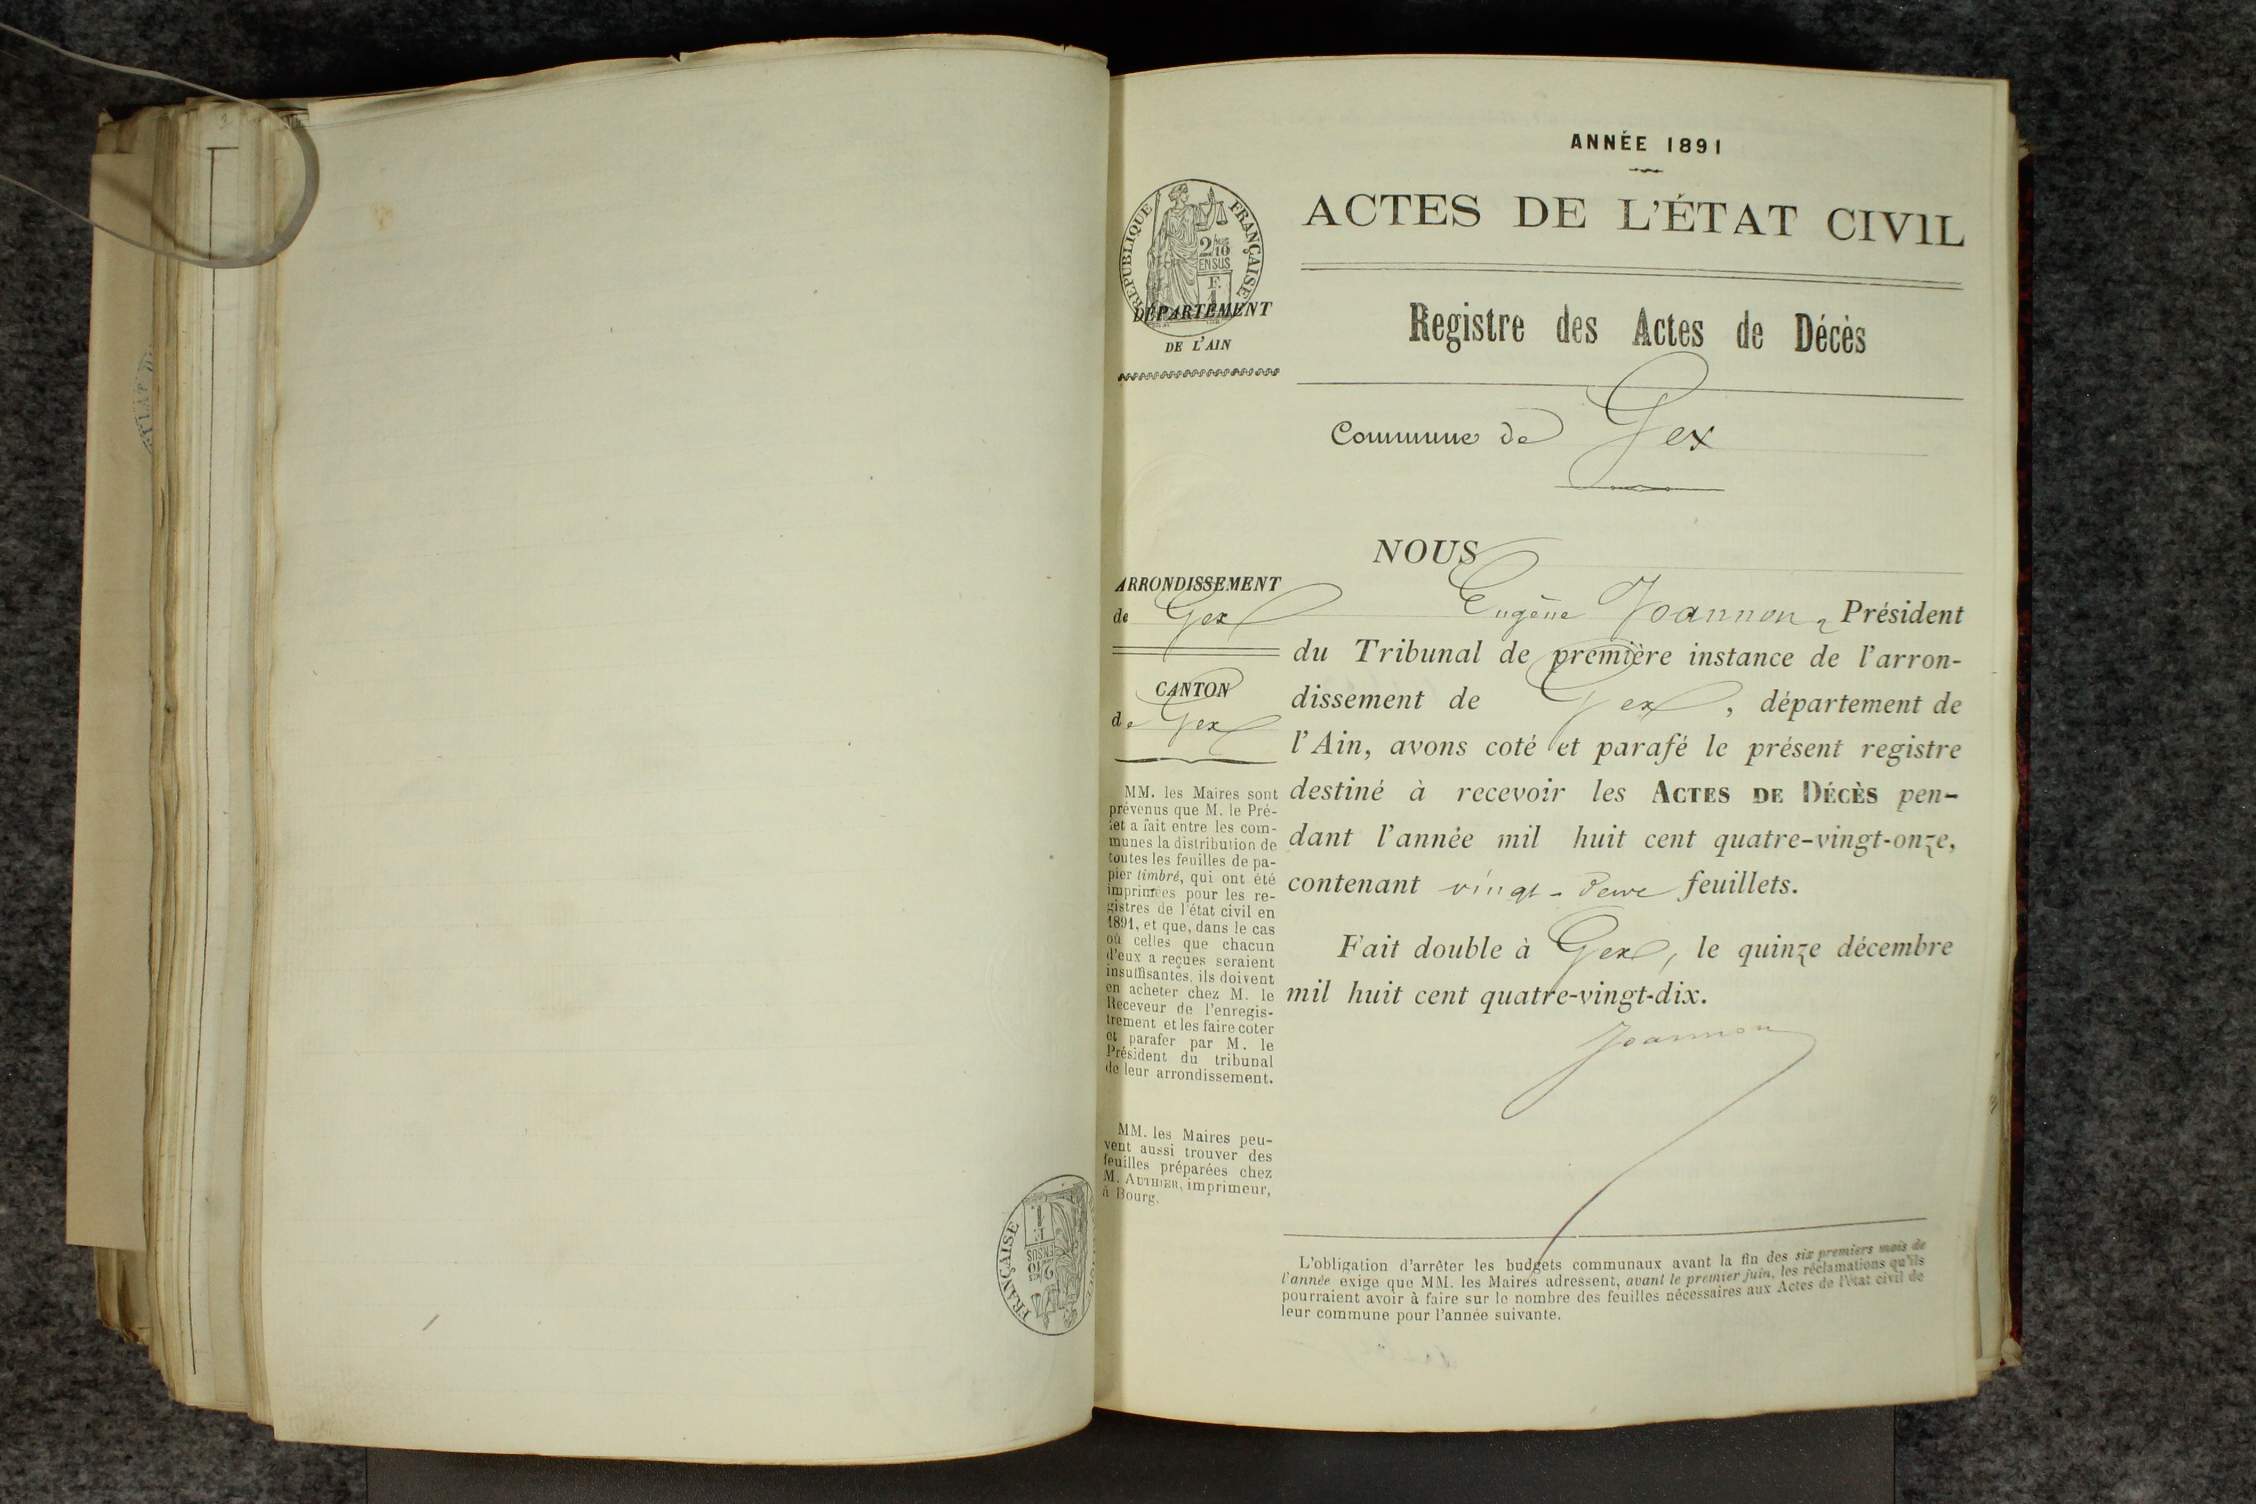 ANNÉE 1891
ACTES DE L'ÉTAT CIVIL
RÉPUBLIQUE FRANÇAISE
2/10
EN SUS
F.
1
DÉPARTEMENT
DE L'AIN
Registre des Actes de Décès
Commune de Gex
NOUS
ARRONDISSEMENT
de Gex
CANTON
de Gex
Eugène Joannon, Président
du Tribunal de première instance de l'arron-
dissement de Gex, département de
l'Ain, avons coté et parafé le présent registre
destiné à recevoir les ACTES DE DÉCÈS pen-
dant l'année mil huit cent quatre-vingt-onze,
contenant vingt-deux feuillets.
Fait double à Gex, le quinze décembre
mil huit cent quatre-vingt-dix.
Joannon
MM. les Maires sont
prévenus que M. le Pré-
fet a fait entre les com-
munes la distribution de
toutes les feuilles de pa-
pier timbré, qui ont été
imprimées pour les re-
gistres de l'état civil en
1891, et que, dans le cas
où celles que chacun
d'eux a reçues seraient
insuffisantes, ils doivent
en acheter chez M. le
Receveur de l'enregis-
trement et les faire coter
et parafer par M. le
Président du tribunal
de leur arrondissement.
MM. les Maires peu-
vent aussi trouver des
feuilles préparées chez
M. AUTHIER, imprimeur,
à Bourg.
L'obligation d'arrêter les budgets communaux avant la fin des six premiers mois de
l'année exige que MM. les Maires adressent, avant le premier juin, les réclamations qu'ils
pourraient avoir à faire sur le nombre des feuilles nécessaires aux Actes de l'état civil de
leur commune pour l'année suivante.
FRANÇAISE
2/10
EN SUS
F.
1